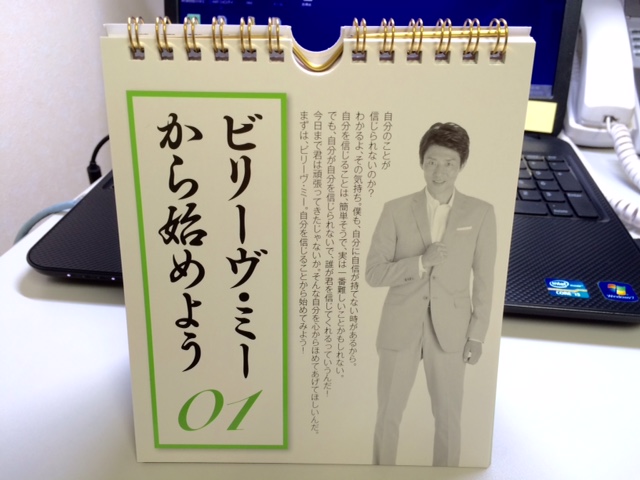 ビリーヴ・ミー
から始めよう
01
自分のことが
信じられないのか?
わかるよ、その気持ち。僕も、自分に自信が持てない時があるから。
自分を信じることは、簡単そうで、実は一番難しいことかもしれない。
でも、自分が自分を信じられないで、誰が君を信じてくれるっていうんだ!
今日まで君は頑張ってきたじゃないか。そんな自分を心からほめてあげてほしいんだ。
まずは、ビリーヴ・ミー。自分を信じることから始めてみよう!
intel
CORE i3
Windows 7